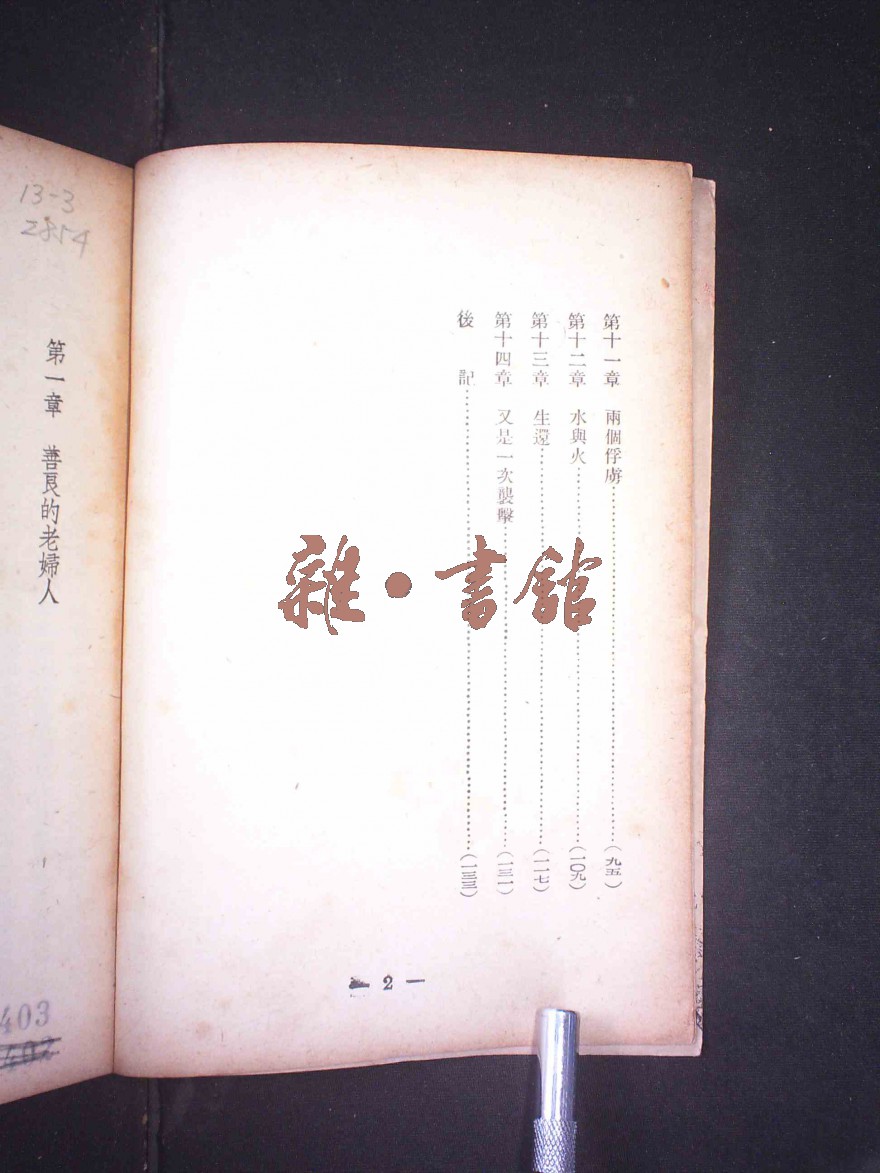 第十一章 兩個俘虜……(九五)
第十二章 水與火……(一〇九)
第十三章 生還……(一一七)
第十四章 又是一次襲擊……(一三一)
後記……(一三三)
— 2 —
雜·書館
13-3
2854
第一章 善良的老婦人
403
402